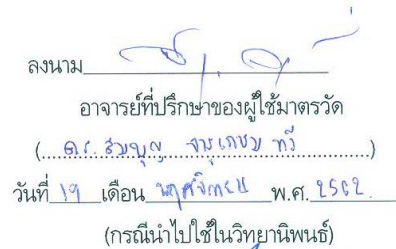 ลงนาม
อาจารย์ที่ปรึกษาของผู้ใช้มาตรวัด
(ดร. สมบุญ จารุเกษม ทวี)
วันที่ 19 เดือน พฤศจิกายน พ.ศ. 2562
(กรณีนำไปใช้ในวิทยานิพนธ์)